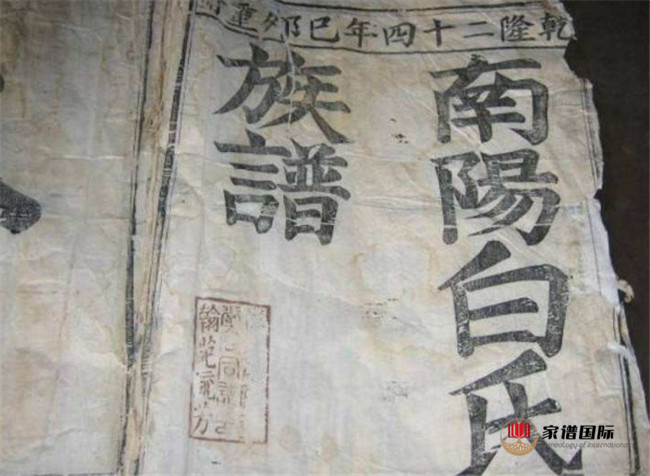 乾隆二十四年巳卯
重
南陽白氏
族譜
家谱国际
Genealogy of International